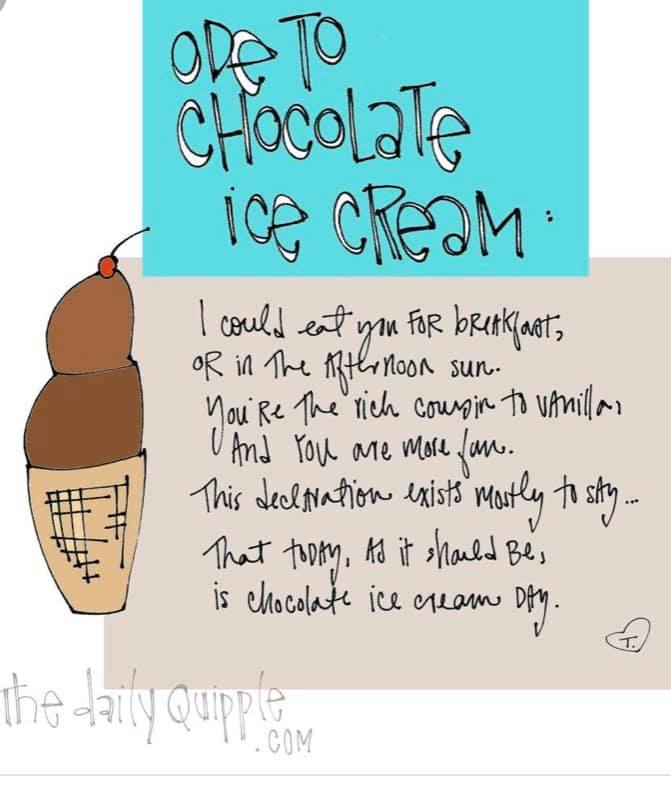 ODE TO
CHOCOLATE
ice CREAM:
I could eat you FOR breakfast,
OR in The Afternoon sun.
You're The rich cousin to vanilla,
And You are more fun.
This declaration exists mostly to sAy...
That toDAy, As it should Be,
is chocolate ice cream DAy.
T.
the daily Quipple
.COM